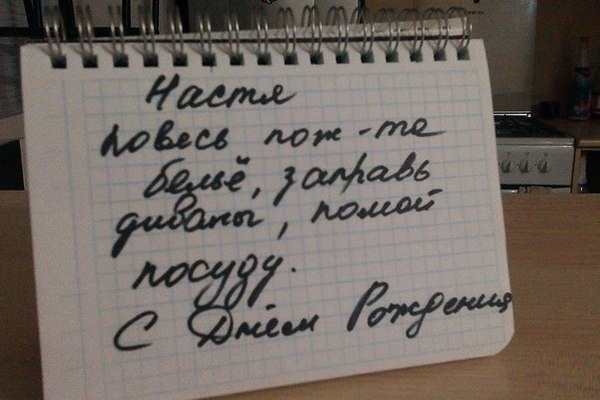 Настя
повесь пож-та
бельё, заправь
диваны, помой
посуду.
С Днём Рождения